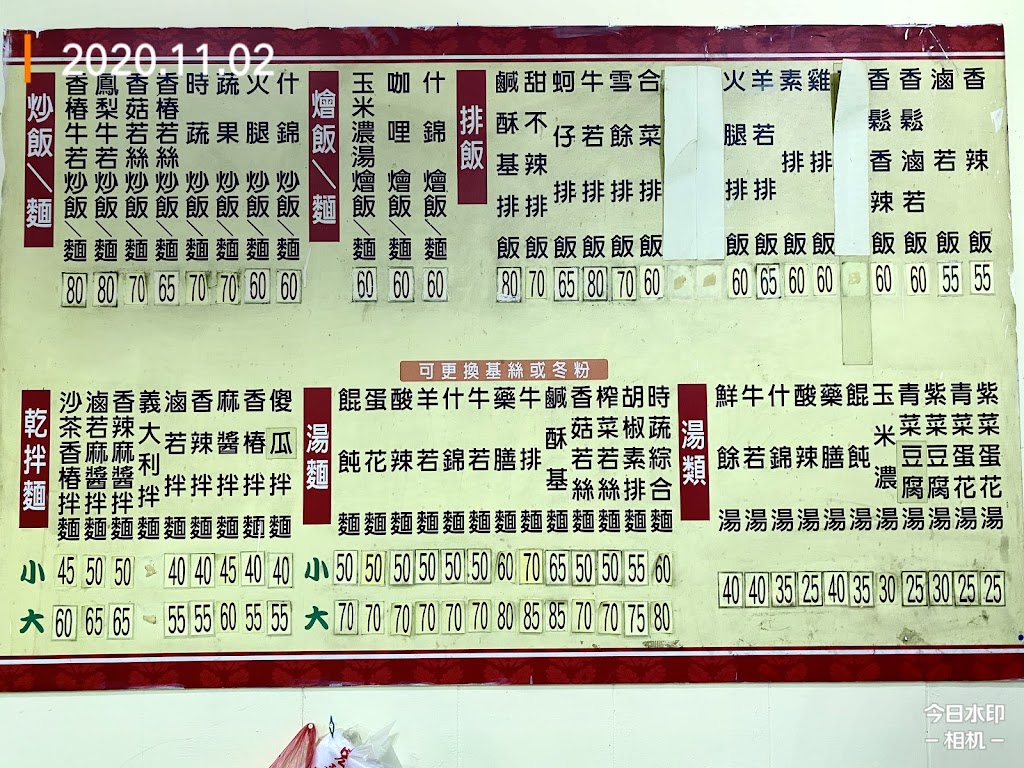 2020.11.02
炒飯\麵
香椿牛若炒飯\麵 80
鳳梨牛若炒飯\麵 80
香菇若絲炒飯\麵 70
香椿若絲炒飯\麵 65
時蔬炒飯\麵 70
蔬果炒飯\麵 70
火腿炒飯\麵 60
什錦炒飯\麵 60
燴飯\麵
玉米濃湯燴飯\麵 60
咖哩燴飯\麵 60
什錦燴飯\麵 60
排飯
鹹酥基排飯 80
甜不辣排飯 70
蚵仔排飯 65
牛若排飯 80
雪餘排飯 70
合菜排飯 60
火腿排飯 60
羊若排飯 65
素排飯 60
雞排飯 60
香鬆香辣飯 60
香鬆滷若飯 60
滷若飯 55
香辣飯 55
可更換基絲或冬粉
乾拌麵
小
大
沙茶香椿拌麵 45 60
滷若麻醬拌麵 50 65
香辣麻醬拌麵 50 65
義大利拌麵
滷若拌麵 40 55
香辣拌麵 40 55
麻醬拌麵 45 60
香椿拌麵 40 55
傻瓜拌麵 40 55
湯麵
小
大
餛飩麵 50 70
蛋花麵 50 70
酸辣麵 50 70
羊若麵 50 70
什錦麵 50 70
牛若麵 50 70
藥膳麵 60 80
牛排麵 70 85
鹹酥基麵 65 85
香菇若絲麵 50 70
榨菜若絲麵 50 70
胡椒素排麵 55 75
時蔬綜合麵 60 80
湯類
鮮餘湯 40
牛若湯 40
什錦湯 35
酸辣湯 25
藥膳湯 40
餛飩湯 35
玉米濃湯 30
青菜豆腐湯 25
紫菜豆腐湯 30
青菜蛋花湯 25
紫菜蛋花湯 25
今日水印
-相机-